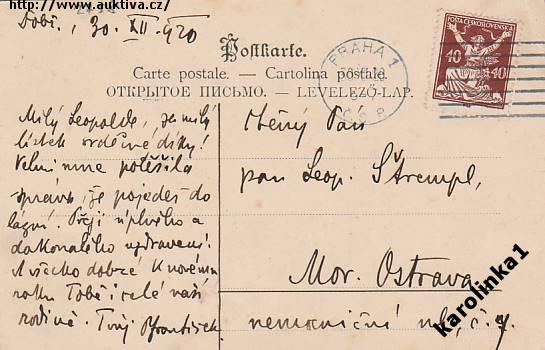 http://www.auktiva.cz/
30. XII. 1920
Postkarte.
Carte postale. — Cartolina postale.
ОТКРЫТОЕ ПИСЬМО. — LEVELEZŐ-LAP.
POŠTA ČESKOSLOVENSKÁ
40 40
PRAHA 1
Č.S.P.
Milý Leopolde, za milý
lístek srdečné díky!
Velmi mne potěšila
zpráva, že pojedeš do
lázní. Přeji úplného a
dokonalého uzdravení!
A všecko dobré k novému
roku Tobě i celé vaší
rodině. Tvůj František.
Ctěný Pán
pan Leop. Štrempl,
Mor. Ostrava
nemocniční ul., č. 7.
karolinka1